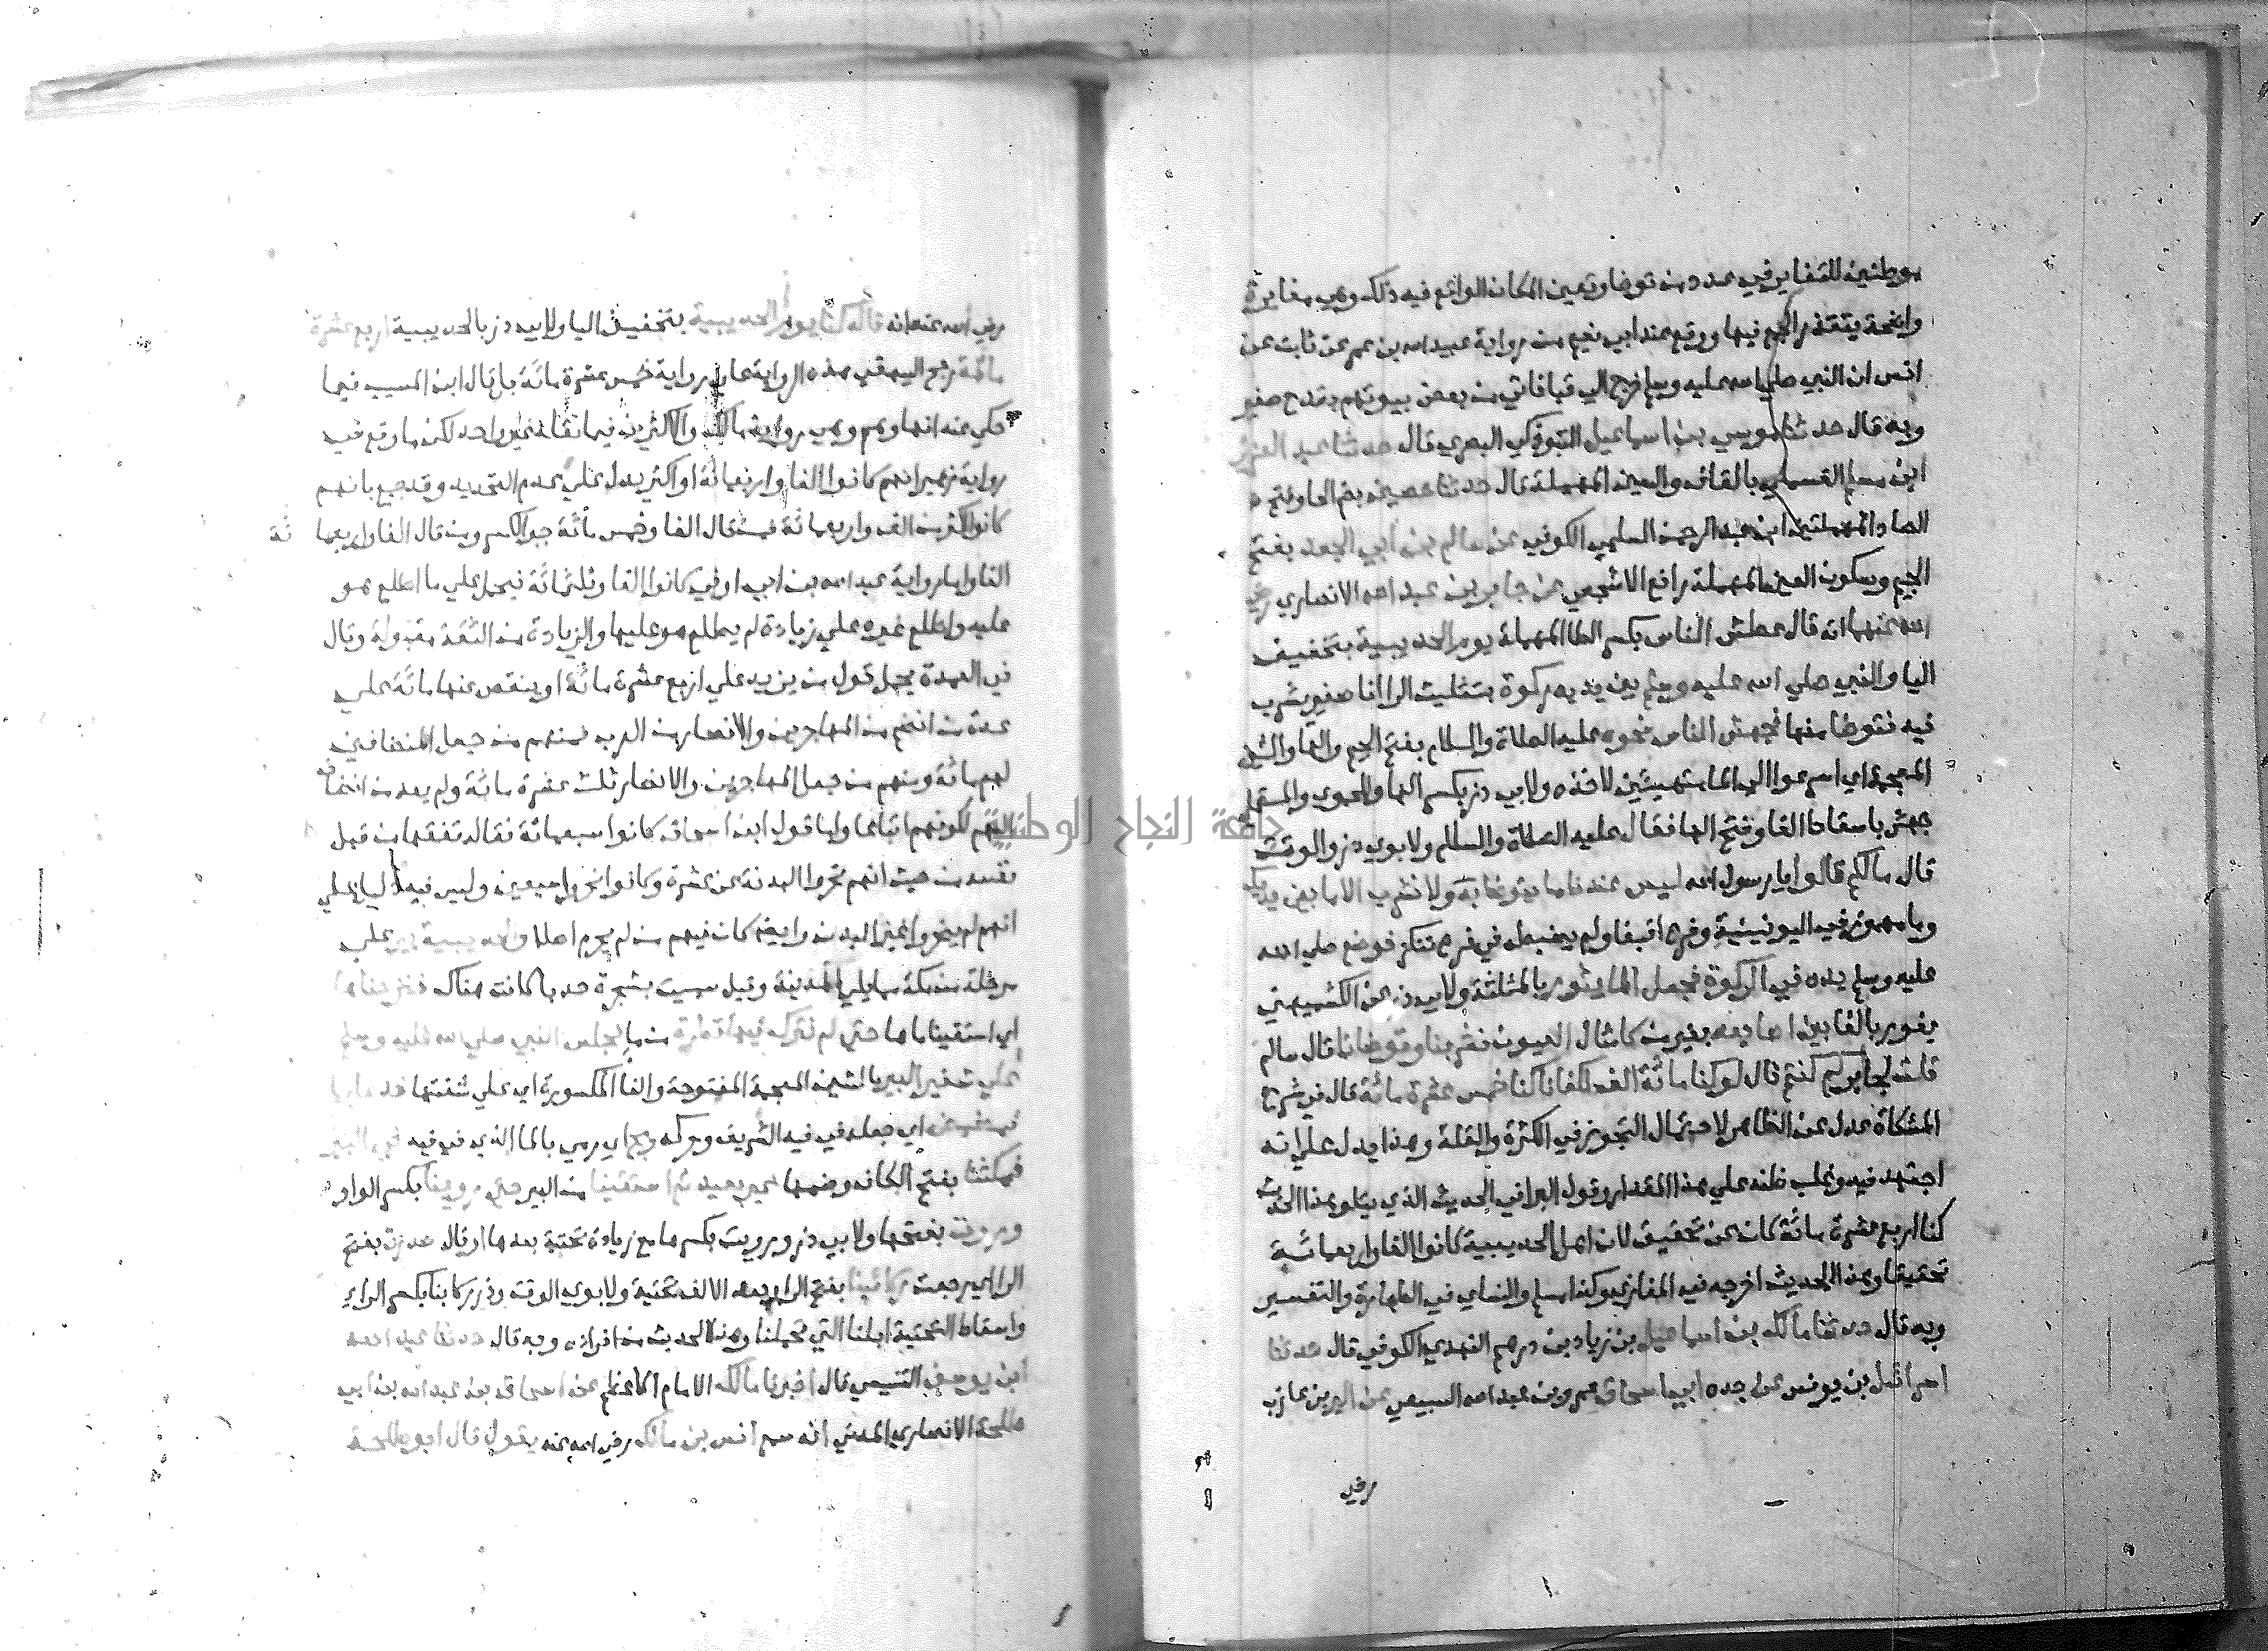 موطنين للتغاير في عدد من توضا وتعين المكان الواقع فيه ذلك وهي مغايرة
واضحة يتعذر الجمع فيها ووقع عند ابي نعيم من رواية عبيد الله بن عمر عن ثابت عن
انس ان النبي صلي الله عليه وسلم خرج الي قبا فاتي من بعض بيوتهم بقدح صغير
وبه قال حدثنا موسي بن اسماعيل التبوذكي البصري قال حدثنا عبد العزيز
ابن مسلم القسملي بالقاف والعين المهملة قال حدثنا حصين بضم الحا وفتح
الصاد المهملتين ابن عبد الرحمن السلمي الكوفي عن سالم بن ابي الجعد بفتح
الجيم وسكون العين المهملة رافع الاشجعي عن جابر بن عبد الله الانصاري رضي
الله عنهما انه قال عطش الناس بكسر الطا المهملة يوم الحديبية بتخفيف
اليا والنبي صلي الله عليه وسلم بين يديه ركوة بتثليث الرا انا صغير يشرب
فيه فتوضا منها فجهش الناس نحوه عليه الصلاة والسلام بفتح الجيم والها والشين
المعجمة اي اسرعوا الي الما متهيئين لاخذه ولابي ذر بكسر الها وللحموي والمستملي
جهش باسقاط الفا وفتح الها فقال عليه الصلاة والسلام ولابوي ذر والوقت
قال مالكم قالوا يا رسول الله ليس عندنا ما نتوضا به ولا نشرب الا ما بين يديك
وما مهموز في اليونينية وفرع اقبغا ولم يضبطه في فرع تنكز فوضع صلي الله
عليه وسلم يده في الركوة فجعل الما يثور بالمثلثة ولابي ذر عن الكشميهني
يفور بالفا بين اصابعه بغير من كامثال العيون فشربنا وتوضانا قال سالم
قلت لجابر كم كنتم قال لو كنا مائة الف لكفانا كنا خمس عشرة مائة قال في شرح
المشكاة عدل عن الظاهر لاحتمال التجوز في الكثرة والقلة وهذا يدل علي انه
اجتهد فيه وغلب ظنه علي هذا المقدار وقول البرا في الحديث الذي يتلو هذا الحديث
كنا اربع عشرة مائة كان عن تحقيق لان اهل الحديبية كانوا الفا واربعمائة
تحقيقا وهذا الحديث اخرجه في المغازي وكذا مسلم والنساي في الطهارة والتفسير
وبه قال حدثنا مالك بن اسماعيل بن زياد بن درهم النهدي الكوفي قال حدثنا
اسرائيل بن يونس عن جده ابي اسحاق عمرو بن عبد الله السبيعي عن البرا بن عازب
رضي
رضي الله عنه انه قال كنا يوم الحديبية بتخفيف اليا ولابي ذر بالحديبية اربع عشرة
مائة رجح البيهقي هذه الرواية علي رواية خمس عشرة مائة بل قال ابن المسيب فيما
حكي عنه انها وهم وهي رواية مالك والاكثرين فيما نقله غير واحد لكن ما وقع في
رواية زهير انهم كانوا الفا واربعمائة او اكثر يدل علي عدم التحديد وقد جمع بانهم
كانوا اكثر من الف واربعمائة فمن قال الفا وخمس مائة جبر الكسر ومن قال الفا واربعما ئة
الغا واما رواية عبد الله بن ابي اوفي كانوا الفا وثلثمائة فيحمل علي ما اطلع هو
عليه واطلع غيره علي زيادة لم يطلع هو عليها والزيادة من الثقة مقبولة وقال
في العمدة يحمل قول من يزيد علي اربع عشرة مائة او ينقص عنها مائة علي
عدة من انضم من المهاجرين والانصار من العرب فمنهم من جعل المنضافين
لهم مائة ومنهم من جعل المهاجرين والانصار ثلث عشرة مائة ولم يعد من انضاف
اليهم لكونهم اتباعا واما قول ابن اسحاق كانوا سبعمائة فقاله تفقها من قبل
نفسه من حيث انهم نحروا البدنة عن عشرة وكانوا نحروا سبعين وليس فيه دليل علي
انهم لم ينحروا غير البدن وايضا كان فيهم من لم يحرم اصلا والحديبية بير علي
مرحلة من مكة مما يلي المدينة وقيل سميت بشجرة حدبا كانت هناك فنزحناها
اي استقينا ماها حتي لم نترك فيها قطرة من ما فجلس النبي صلي الله عليه وسلم
علي شفير البير بالشين المعجمة المفتوحة والفا المكسورة اي علي شفتها فدعا بما
فمضمض اي جعله في فيه الشريف وحركه ومج اي رمي بالما الذي في فيه في البير
فمكثنا بفتح الكاف وضمها غير بعيد ثم استقينا من البير حتي روينا بكسر الواو
وروت بفتحها ولابي ذر ورويت بكسرها مع زيادة تحتية بعدها او قال صدرت بفتح
الرا اي رجعت ركائبنا بفتح الرا وبعد الالف تحتية ولابوي الوقت وذر ركابنا بكسر الراي
واسقاط التحتية ابلنا التي تحملنا وهذا الحديث من افراده وبه قال حدثنا عبد الله
ابن يوسف التنيسي قال اخبرنا مالك الامام الاعظم عن اسحاق بن عبد الله بن ابي
طلحة الانصاري المدني انه سمع انس بن مالك رضي الله عنه يقول قال ابو طلحة
جامعة النجاح الوطنية